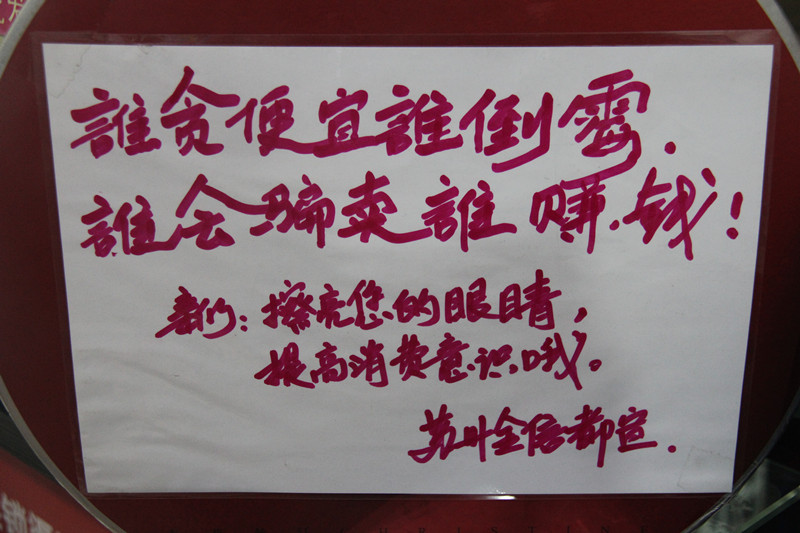 誰贪便宜誰倒霉.
誰会骗卖誰赚钱!
擦亮您的眼睛,
提高消费意识哦。
苏州全信都宣.